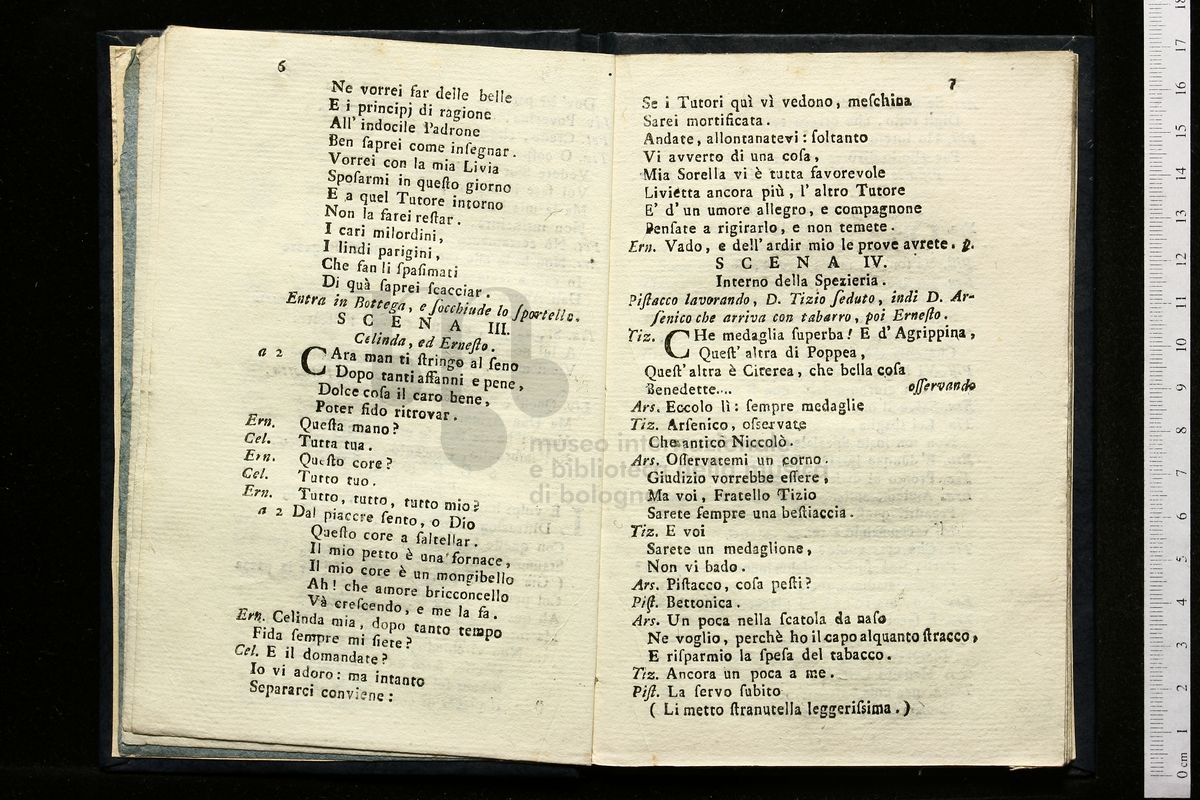 6
Ne vorrei far delle belle
E i principj di ragione
All' indocile Padrone
Ben ſaprei come inſegnar.
Vorrei con la mia Livia
Spoſarmi in queſto giorno
E a quel Tutore intorno
Non la farei reſtar.
I cari milordini,
I lindi parigini,
Che fan li ſpaſimati
Di quà ſaprei ſcacciar.
Entra in Bottega, e ſocchiude lo ſportello.
SCENA III.
Celinda, ed Erneſto.
a 2 CAra man ti ſtringo al ſeno
Dopo tanti affanni e pene,
Dolce coſa il caro bene,
Poter fido ritrovar.
Ern. Queſta mano?
Cel. Tutta tua.
Ern. Queſto core?
Cel. Tutto tuo.
Ern. Tutto, tutto, tutto mio?
a 2 Dal piacere ſento, o Dio
Queſto core a ſaltellar.
Il mio petto è una fornace,
Il mio core è un mongibello
Ah! che amore bricconcello
Và creſcendo, e me la fa.
Ern. Celinda mia, dopo tanto tempo
Fida ſempre mi ſiete?
Cel. E il domandate?
Io vi adoro: ma intanto
Separarci conviene:
7
Se i Tutori quì vì vedono, meſchina
Sarei mortificata.
Andate, allontanatevi: ſoltanto
Vi avverto di una coſa,
Mia Sorella vi è tutta favorevole
Livietta ancora più, l' altro Tutore
E' d' un umore allegro, e compagnone
Penſate a rigirarlo, e non temete.
Ern. Vado, e dell' ardir mio le prove avrete. p.
SCENA IV.
Interno della Spezieria.
Piſtacco lavorando, D. Tizio ſeduto, indi D. Ar-
ſenico che arriva con tabarro, poi Erneſto.
Tiz. CHe medaglia ſuperba! E d' Agrippina,
Queſt' altra di Poppea,
Queſt' altra è Citerea, che bella coſa
Benedette.... oſſervando
Ars. Eccolo lì: ſempre medaglie
Tiz. Arſenico, oſservate
Che antico Niccolò.
Ars. Oſſervatemi un corno.
Giudizio vorrebbe eſſere,
Ma voi, Fratello Tizio
Sarete ſempre una beſtiaccia.
Tiz. E voi
Sarete un medaglione,
Non vi bado.
Ars. Piſtacco, coſa peſti?
Piſt. Bettonica.
Ars. Un poca nella ſcatola da naſo
Ne voglio, perchè ho il capo alquanto ſtracco,
E riſparmio la ſpeſa del tabacco.
Tiz. Ancora un poca a me.
Piſt. La ſervo ſubito
( Li metto ſtranutella leggeriſsima.)
museo internazionale
e biblioteca della musica
di bologna
0 cm 1 2 3 4 5 6 7 8 9 10 11 12 13 14 15 16 17 18